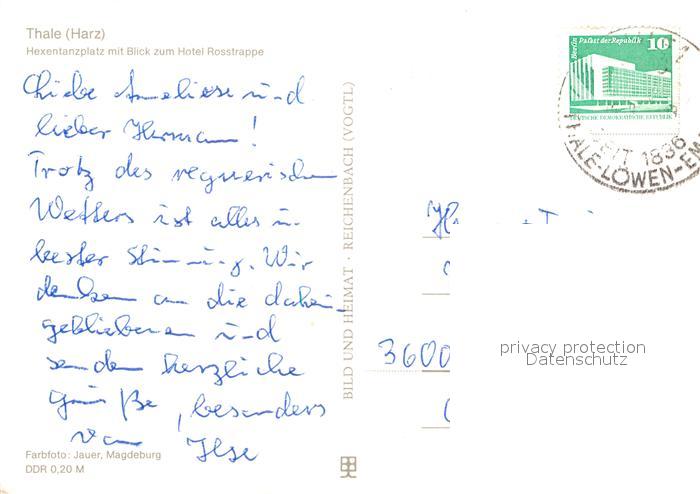 Thale (Harz)
Hexentanzplatz mit Blick zum Hotel Rosstrappe
Liebe Anneliese und
lieber Hermann!
Trotz des regnerischen
Wetters ist alles in
bester Stimmung. Wir
denken an die daheim-
gebliebenen und
senden herzliche
Grüße, besonders
von Ilse
Farbfoto: Jauer, Magdeburg
DDR 0,20 M
BILD UND HEIMAT · REICHENBACH (VOGTL)
Berlin Palast der Republik 10
DEUTSCHE DEMOKRATISCHE REPUBLIK
SEIT 1836
LÖWEN-
3600
privacy protection
Datenschutz